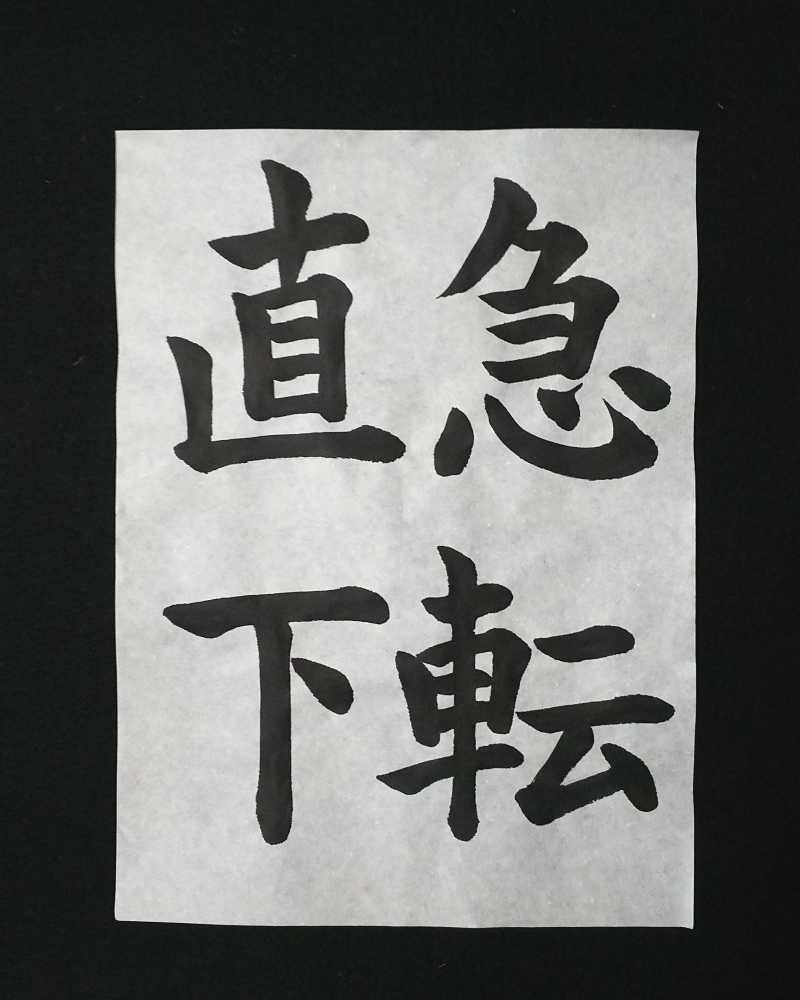 急転
直下